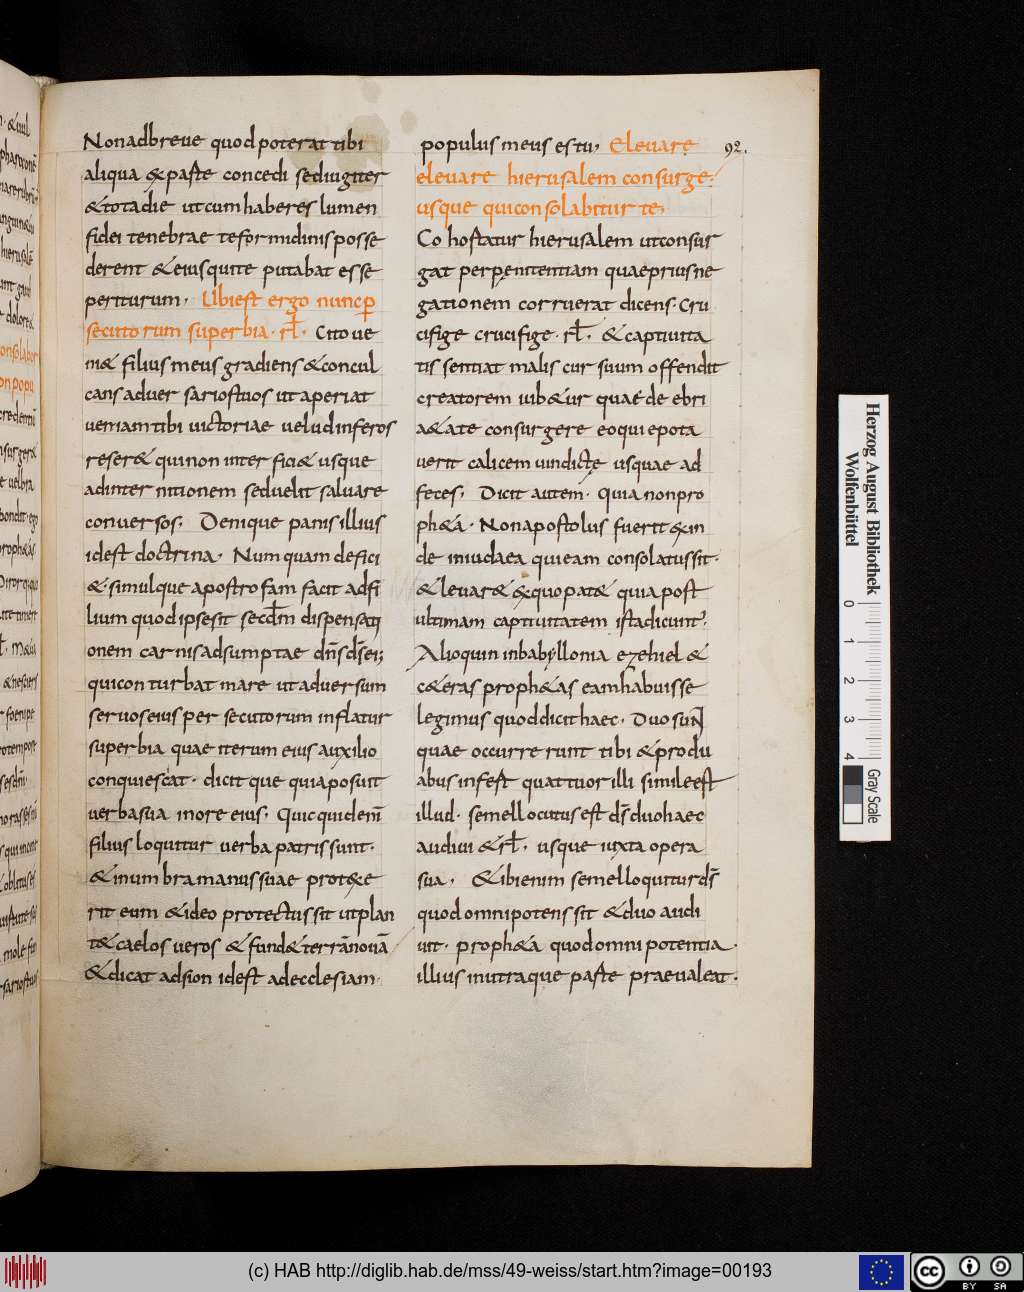 Nonadbreue quod poterat tibi
aliqua & paste concedi sed iugiter
& tota die ut cum haberes lumen
fidei tenebrae te formidinis posse
derent & eius qui te putabat esse
periturum. Ubi est ergo nunc p
secutorum superbia. rl. Cito ue
ni& filius meus gradiens & concul
cans aduersarios tuos ut aperiat
ueniam tibi uictoriae uelud inferos
reser& qui non interficie usque
ad internitionem sed uelit saluare
conuersos. Denique panis illius
id est doctrina. Numquam defici
& simulque apostrofam facit ad fi
lium quod ipse sit secdm dispensati
onem carnis adsumptae dns ds ei;
qui conturbat mare ut aduersum
seruos eius persecutorum inflatur
superbia quae iterum eius auxilio
conquiescat. dicitque quia posuit
uerba sua in ore eius. Quicquid enī
filius loquitur uerba patris sunt.
& in umbra manus suae protexe
rit eum & ideo protectus sit ut plan
t& caelos ueros & fund& terrā nouā
& dicat ad sion id est ad ecclesiam.
populus meus es tu, Eleuare
eleuare hierusalem consurge.
usque qui consolabitur te,
Co hostatur hierusalem ut consur
gat per penitentiam quae prius ne
gationem corruerat dicens. Cru
cifige crucifige. rl. & captiuita
tis sentiat malis cur suum offendit
creatorem iub&ur quae de ebri
a&ate consurgere eo qui epota
uerit calicem uindicte usquae ad
feces, Dicit autem. quia non pro
ph&a. Non apostolus fuerit exin
de in iudaea qui eam consolatus sit.
& leuar& ex quo pat& quia post
ultimam captiuitatem ista dicunt?
Alioquin in babyllonia ezehiel &
c&eras proph&as eam habuisse
legimus quod dicit haec. Duo sunt
quae occurrerunt tibi & produ
abus infest quattuor illi simile est
illud. semel locutus est ds duo haec
audiui & rl. usque iuxta opera
sua, & ibi enim semel loquitur ds
quod omnipotens sit & duo audi
uit. proph&a quod omnipotentia.
illius in utraque paste praeualeat.
92.
Herzog August Bibliothek
Wolfenbüttel
0 1 2 3 4
Gray Scale
(c) HAB http://diglib.hab.de/mss/49-weiss/start.htm?image=00193
cc BY SA